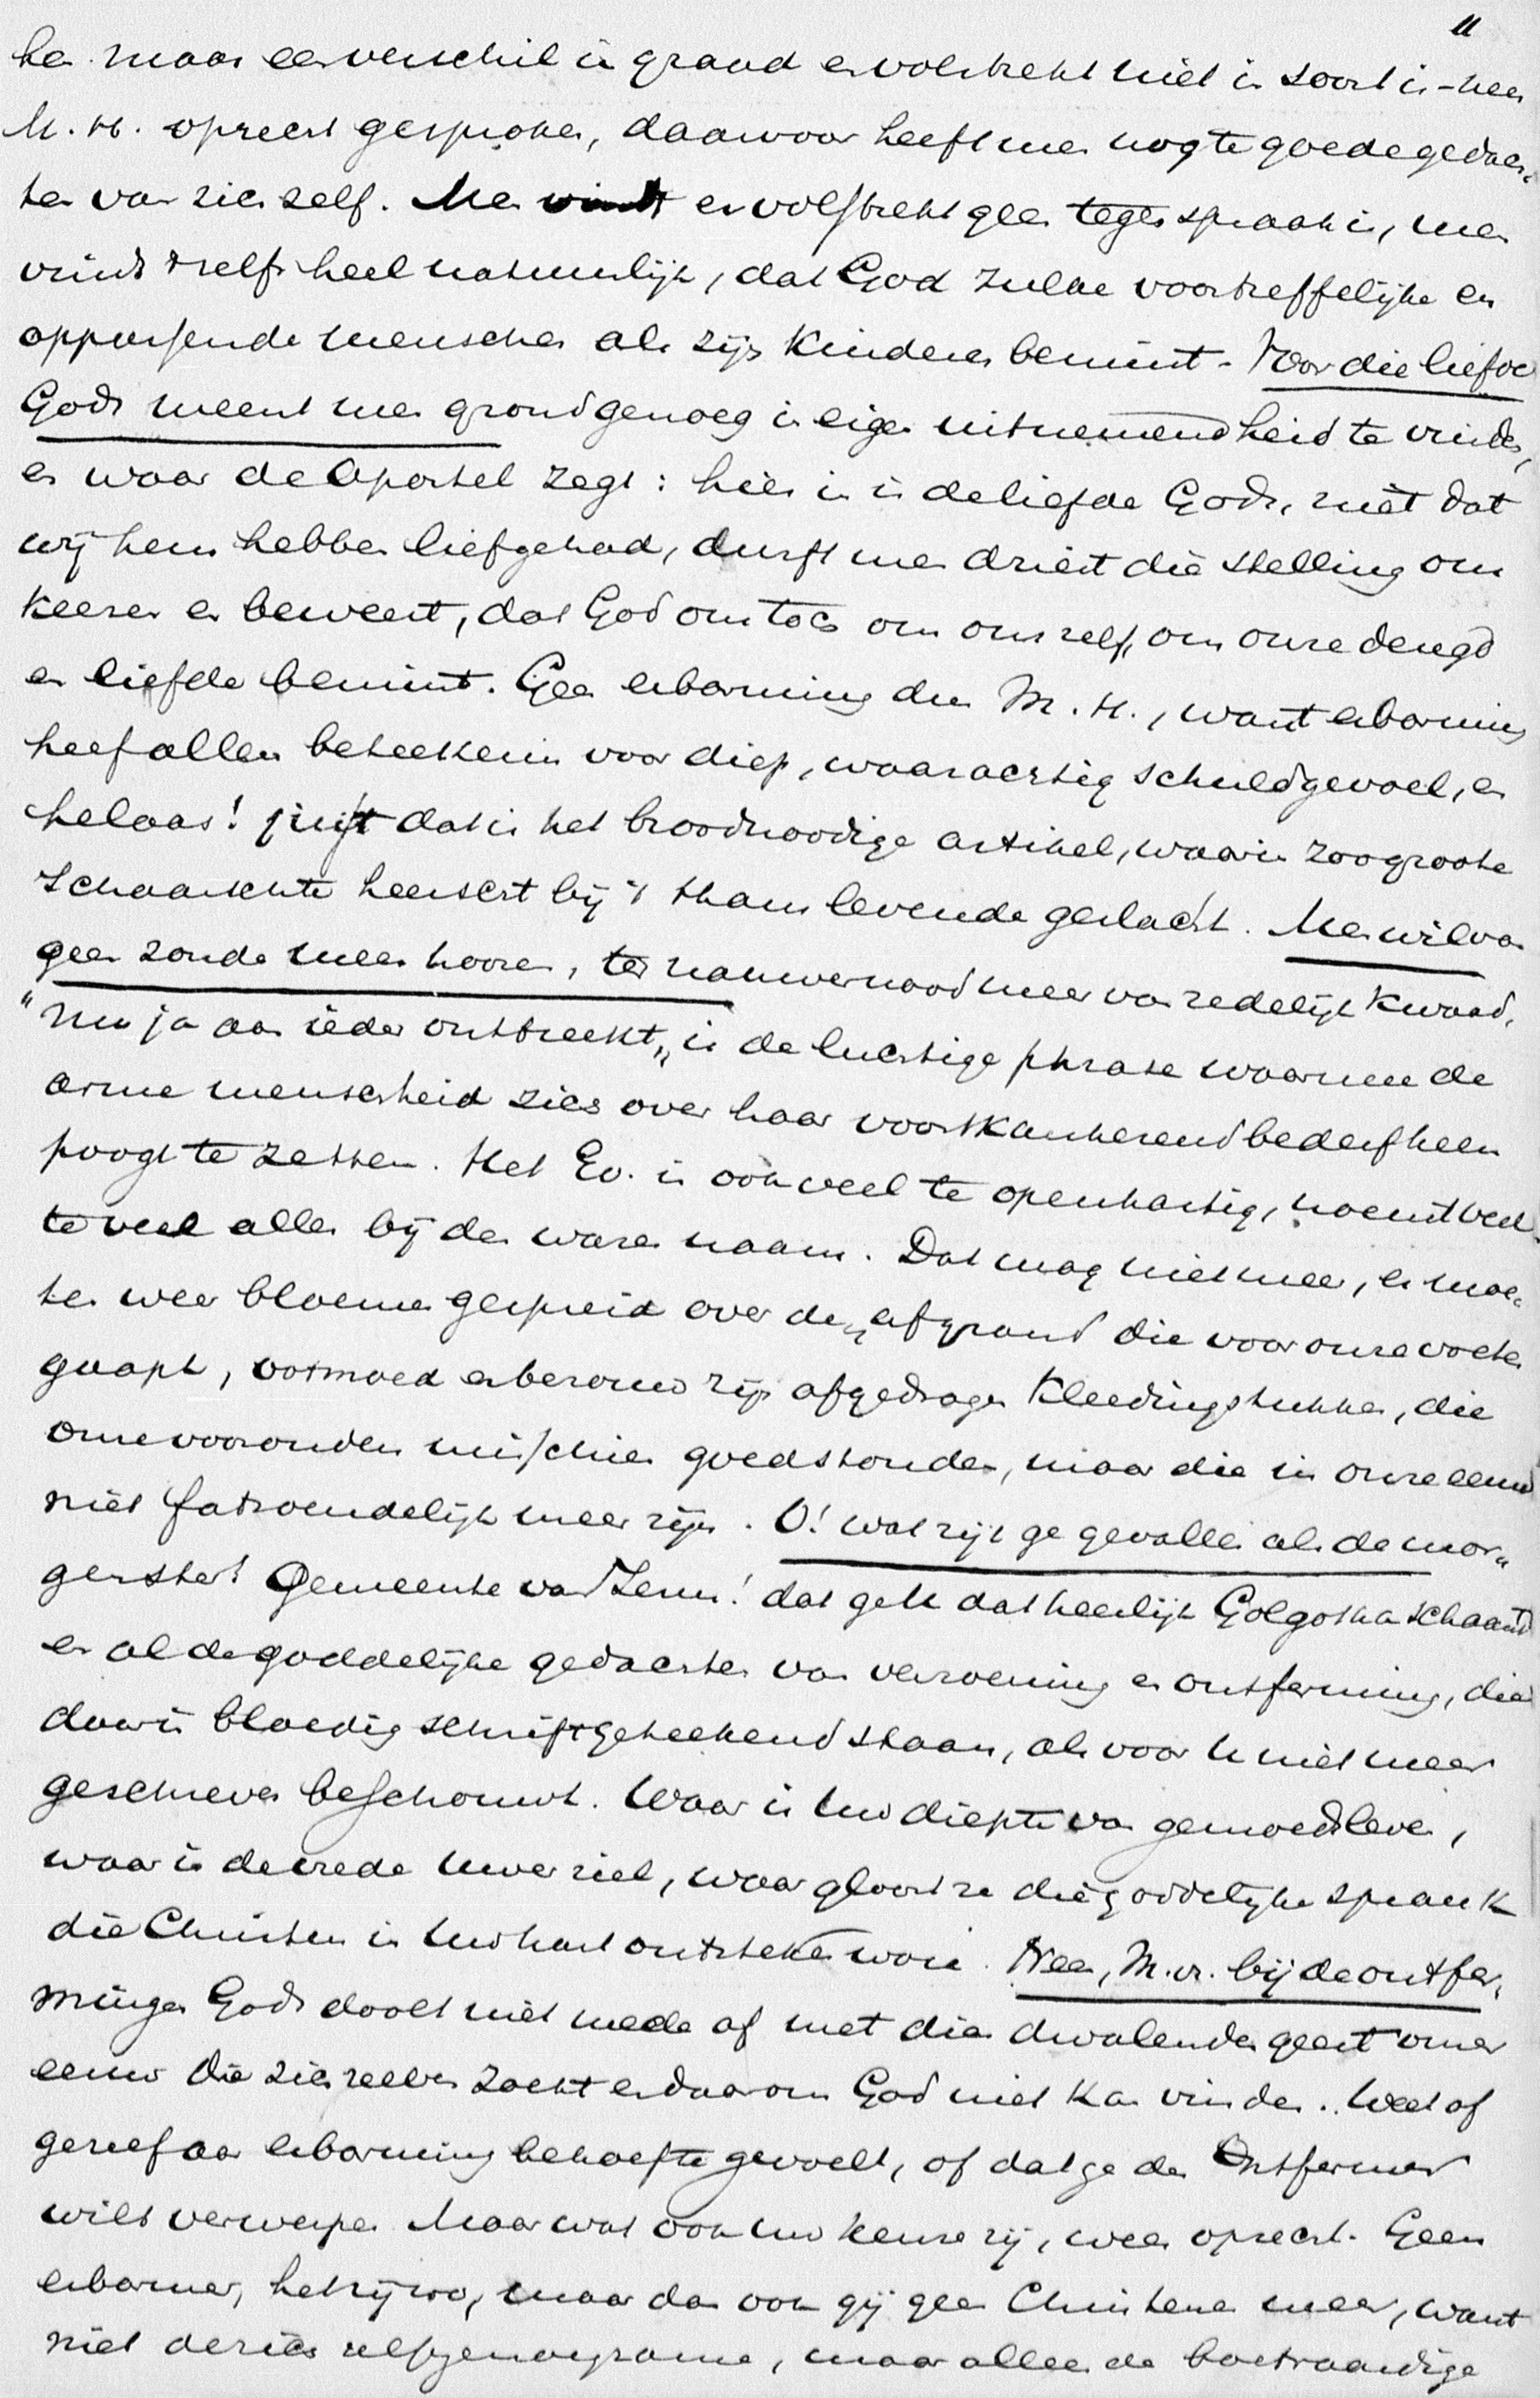 11
ken maar een verschil in graad en volstrekt niet in soort is - neen
M. H. oprecht gesproken, daarvoor heeft men nog te goede gedach„
ten van zich zelf. Men vindt er volstrekt geen tegenspraak in, men
vindt 't zelfs heel natuurlijk, dat God zulke voortreffelijke en
oppassende menschen als zijn kinderen bemint. Voor die liefde
Gods meent men grond genoeg in eigen uitnemendheid te vinden,
en waar de Apostel zegt: hier in is de liefde Gods, niet dat
wij hem hebben liefgehad, durft men driest die stelling om
keeren en beweert, dat God ons toch om ons zelf, om onze deugd
en liefde bemint. Geen erbarming dus M. H., want erbarming
heeft alleen beteekenis voor diep, waarachtig schuldgevoel, en
helaas! juist dat is het broodnoodige artikel, waarin zoo groote
schaarschte heerscht bij 't thans levende geslacht. Men wil van
geen zonde meer hooren, ter nauwernood meer van zedelijk kwaad,
"Nu ja aan ieder ontbreekt„ is de luchtige phrase waarmee de
arme menschheid zich over haar voortkankerend bederf heen
poogt te zetten. Het Ev. is ook veel te openhartig, noemt veel
te veel alles bij den waren naam. Dat mag niet meer, er moe„
ten weer bloemen gespreid over den afgrond die voor onze voeten
gaapt, ootmoed en berouw zijn afgedragen kleedingstukken, die
onze voorouders misschien goed stonden, maar die in onze eeuw
niet fatsoendelijk meer zijn. O! wat zijt ge gevallen als de mor„
genster! Gemeente van Jezus! dat ge U dat heerlijk Golgotha schaamt
en al de goddelijke gedachten van verzoening en ontferming, die
daar in bloedig schrift geteekend staan, als voor U niet meer
geschreven beschouwt. Waar is Uw diepte van gemoedsleven,
waar is de vrede Uwer ziel, waar gloort ze die goddelijke sprank
die Christus in Uw hart ontsteken wou. Neen, M. V. bij de ontfer„
mingen Gods doolt niet mede af met dien dwalenden geest onzer
eeuw die zich zelven zoekt en daarom God niet kan vinden. Weet of
ge zelf aan erbarming behoefte gevoelt, of dat ge den Ontfermer
wilt verwerpen. Maar wat ook Uw keuze zij, wees oprecht. Geen
erbarmer, het zij zoo, maar dan ook gij geen Christenen meer, want
niet de zich zelfgenoegzame, maar alleen de boetvaardige